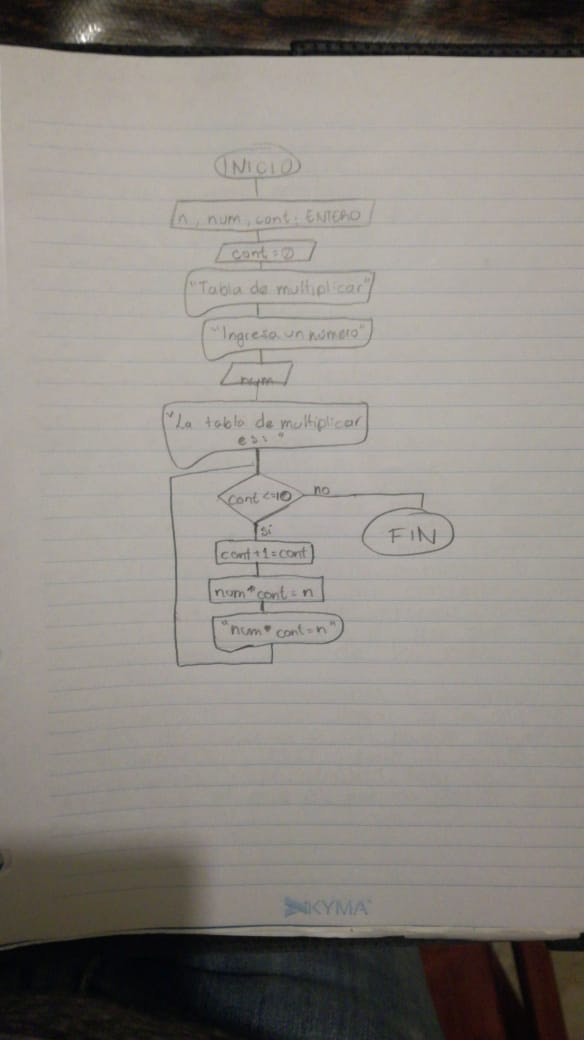 INICIO
n, num, cont: ENTERO
cont = 0
"Tabla de multiplicar"
"Ingresa un número"
num
"La tabla de multiplicar
es: "
cont <=10
no
si
FIN
cont+1=cont
num*cont=n
"num* cont=n"
KYMA